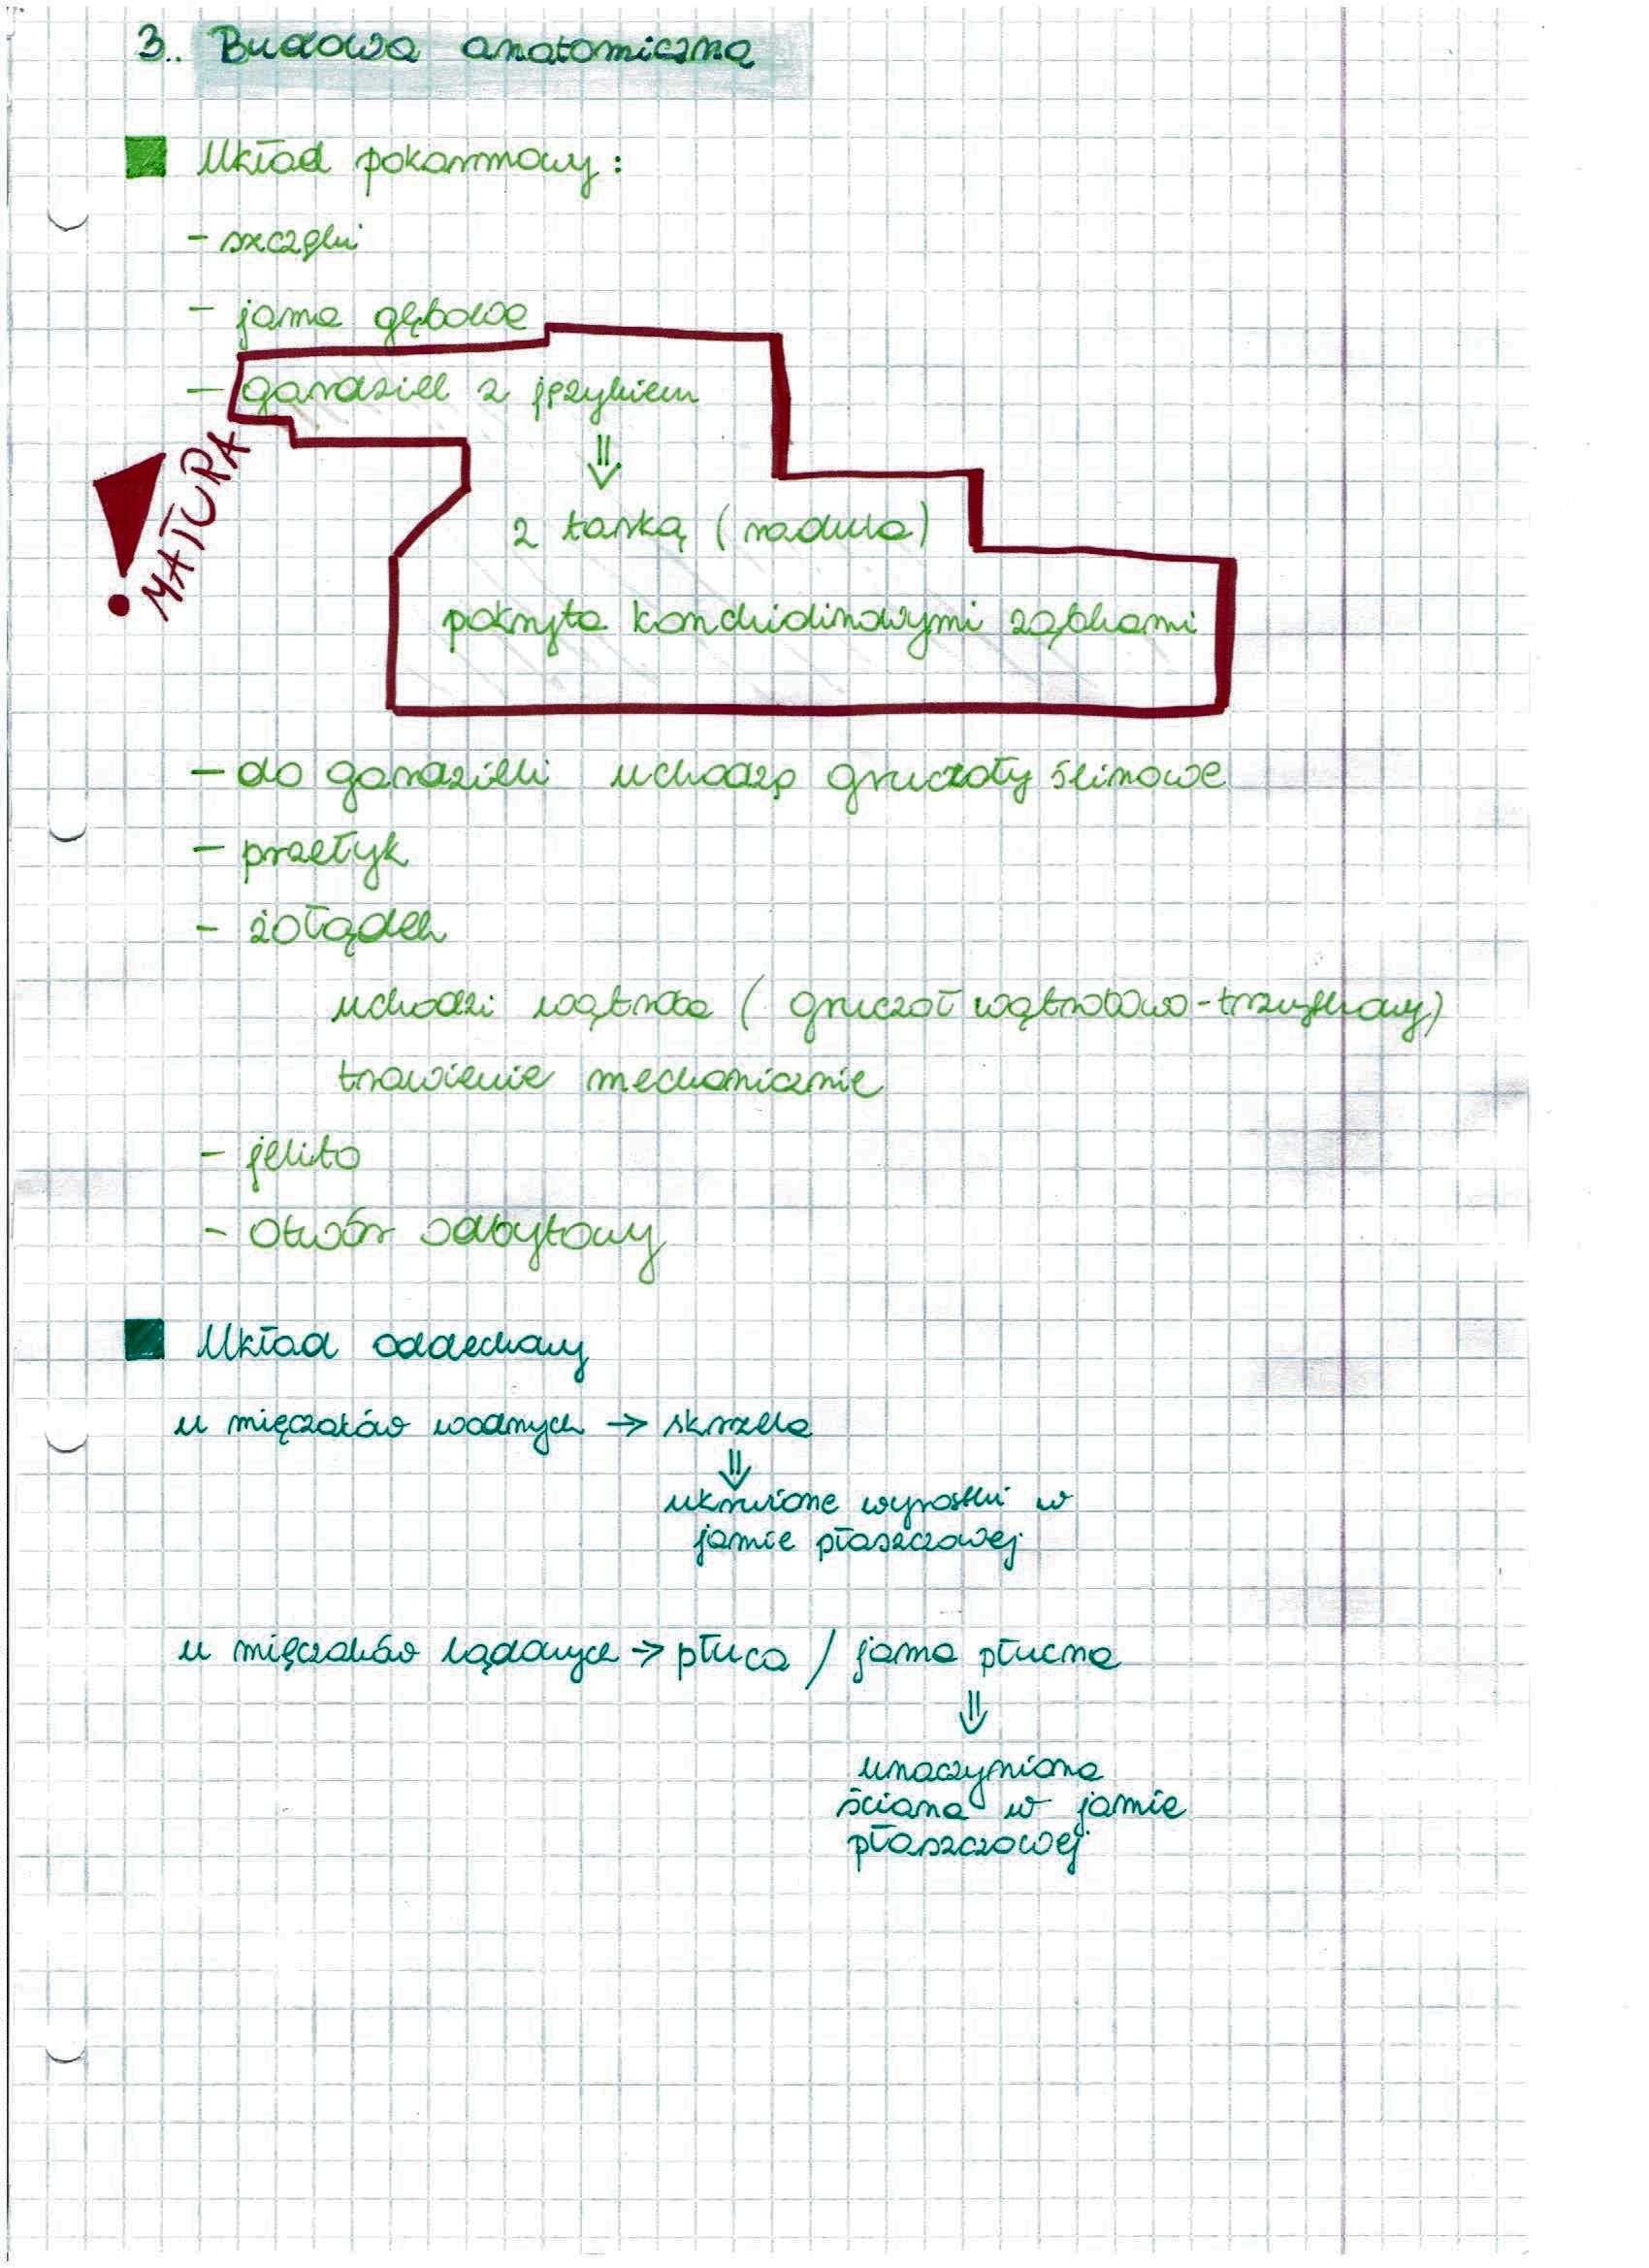 3. Budowa anatomiczna
Układ pokarmowy:
- szczęki
- jama gębowa
- gardziel z językiem
⇓
z tarką (radula)
pokryta konchiolinowymi ząbkami
! MATURA
- do gardzieli uchodzą gruczoły ślinowe
- przełyk
- żołądek
uchodzi wątroba (gruczoł wątrobowo-trzustkowy)
trawienie mechanicznie
- jelito
- otwór odbytowy
Układ oddechowy
u mięczaków wodnych → skrzela
⇓
ukrwione wyrostki w
jamie płaszczowej
u mięczaków lądowych → płuca / jama płucna
⇓
unaczyniona
ściana w jamie
płaszczowej